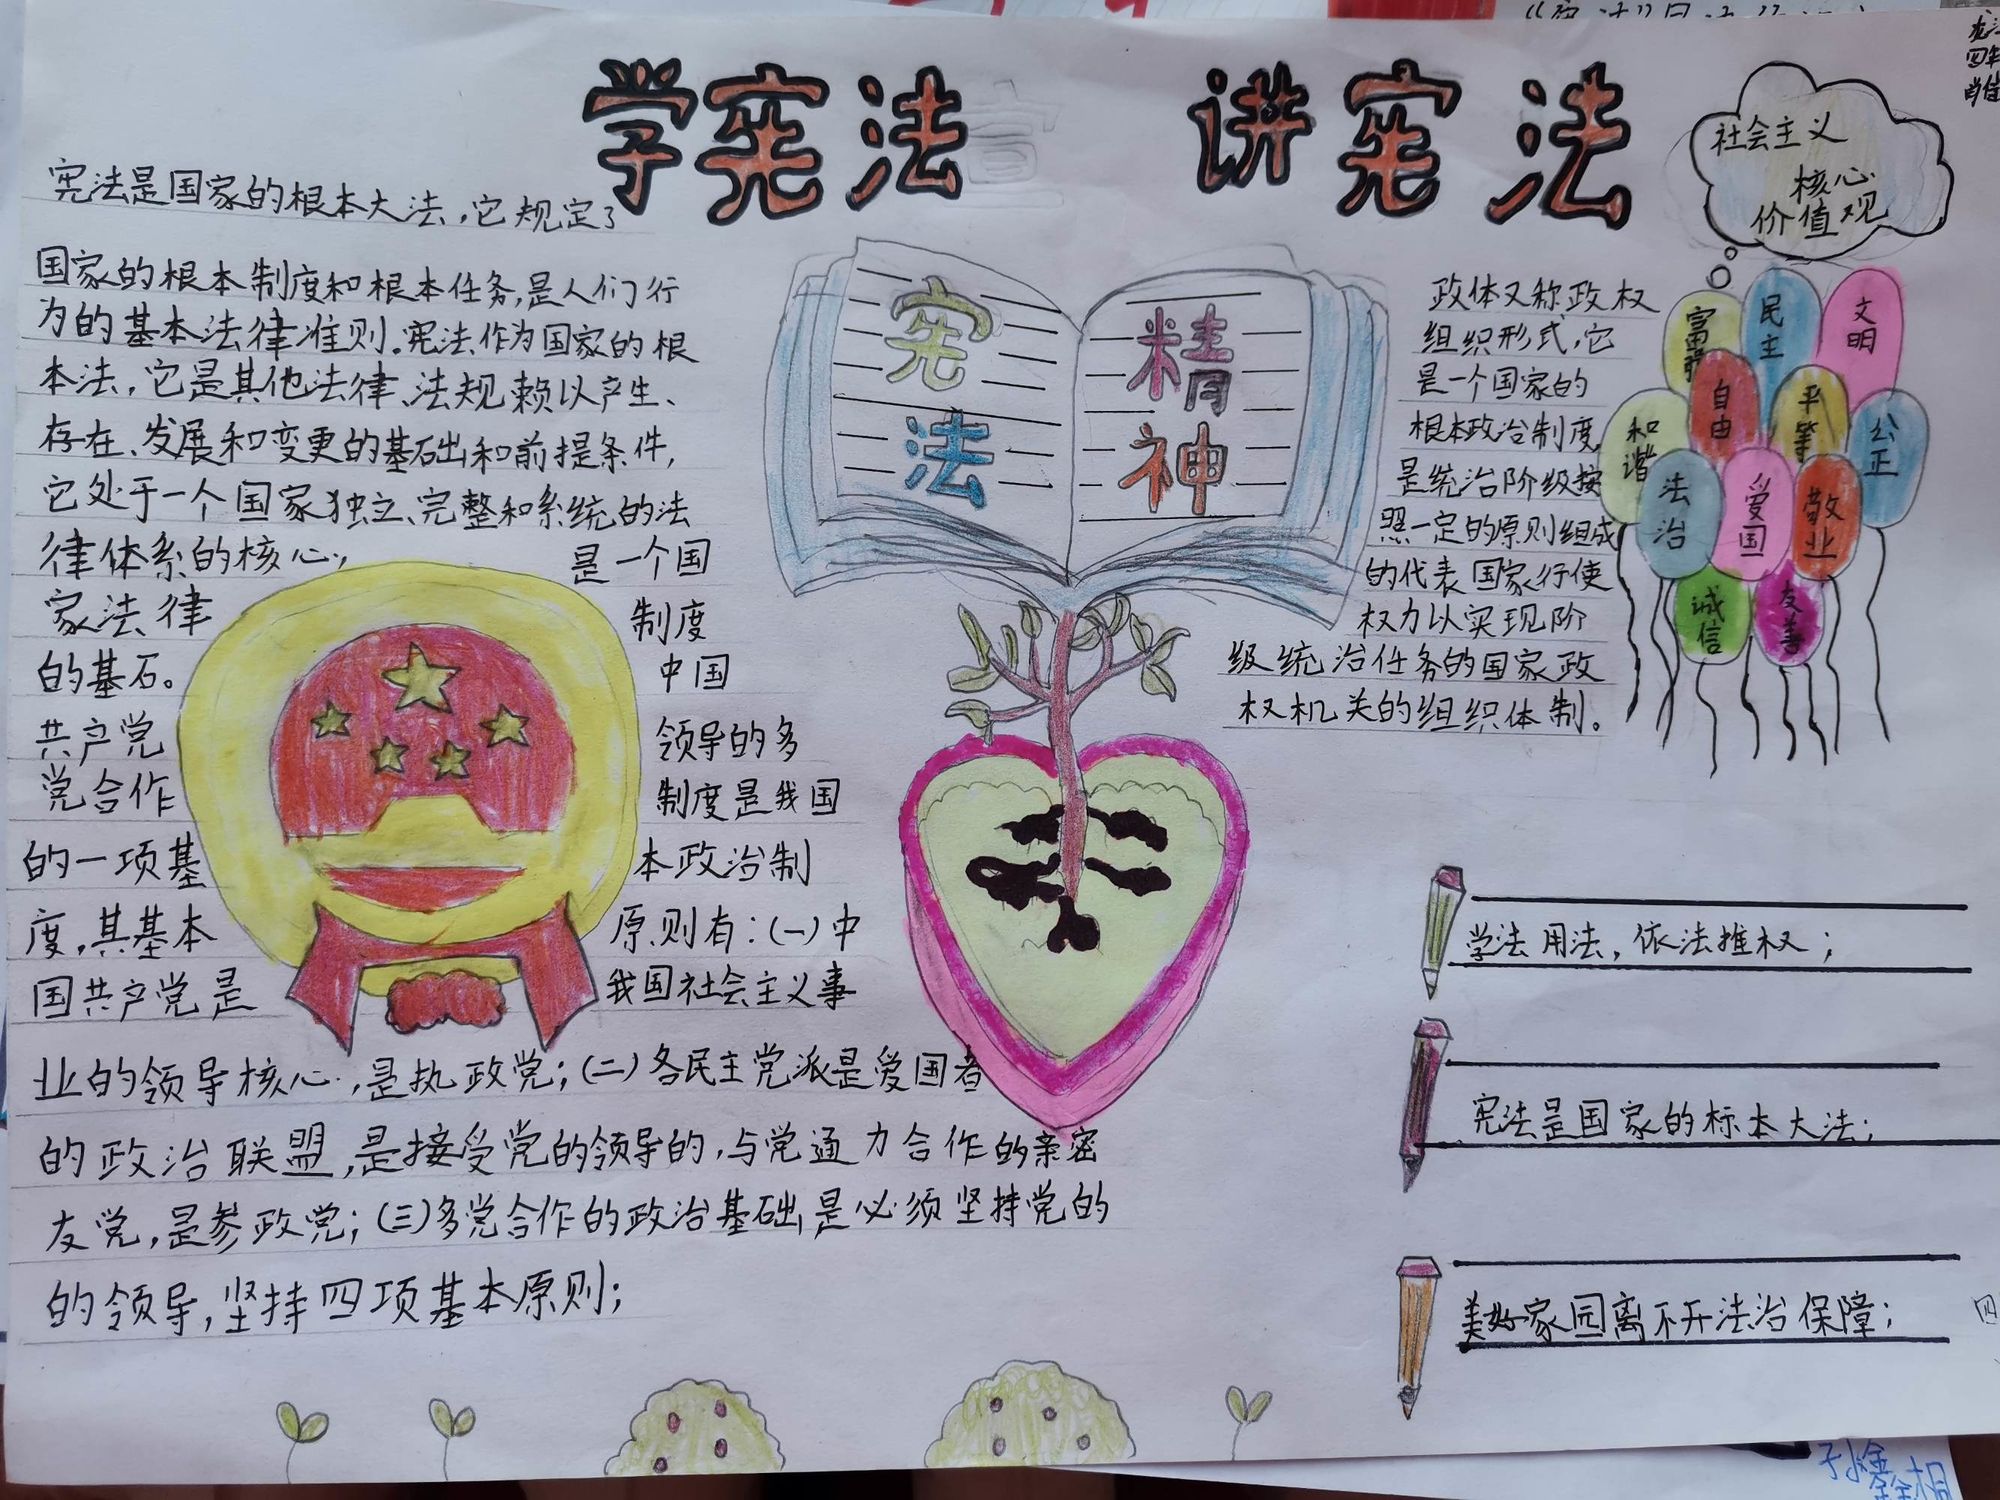 学宪法 讲宪法
宪法是国家的根本大法，它规定了
国家的根本制度和根本任务，是人们行
为的基本法律准则。宪法作为国家的根
本法，它是其他法律、法规赖以产生、
存在、发展和变更的基础和前提条件，
它处于一个国家独立、完整和系统的法
律体系的核心， 是一个国
家法律 制度
的基石。 中国
共产党 领导的多
党合作 制度是我国
的一项基 本政治制
度，其基本 原则有：（一）中
国共产党是 我国社会主义事
业的领导核心，是执政党；（二）各民主党派是爱国者
的政治联盟，是接受党的领导的，与党通力合作的亲密
友党，是参政党；（三）多党合作的政治基础是必须坚持党的
的领导，坚持四项基本原则；
宪
法
精
神
政体又称政权
组织形式，它
是一个国家的
根本政治制度，
是统治阶级按
照一定的原则组成
的代表国家行使
权力以实现阶
级统治任务的国家政
权机关的组织体制。
社会主义
核心
价值观
富强
民主
文明
和谐
自由
平等
公正
法治
爱国
敬业
诚信
友善
学法用法，依法推权；
宪法是国家的标本大法；
美好家园离不开法治保障；